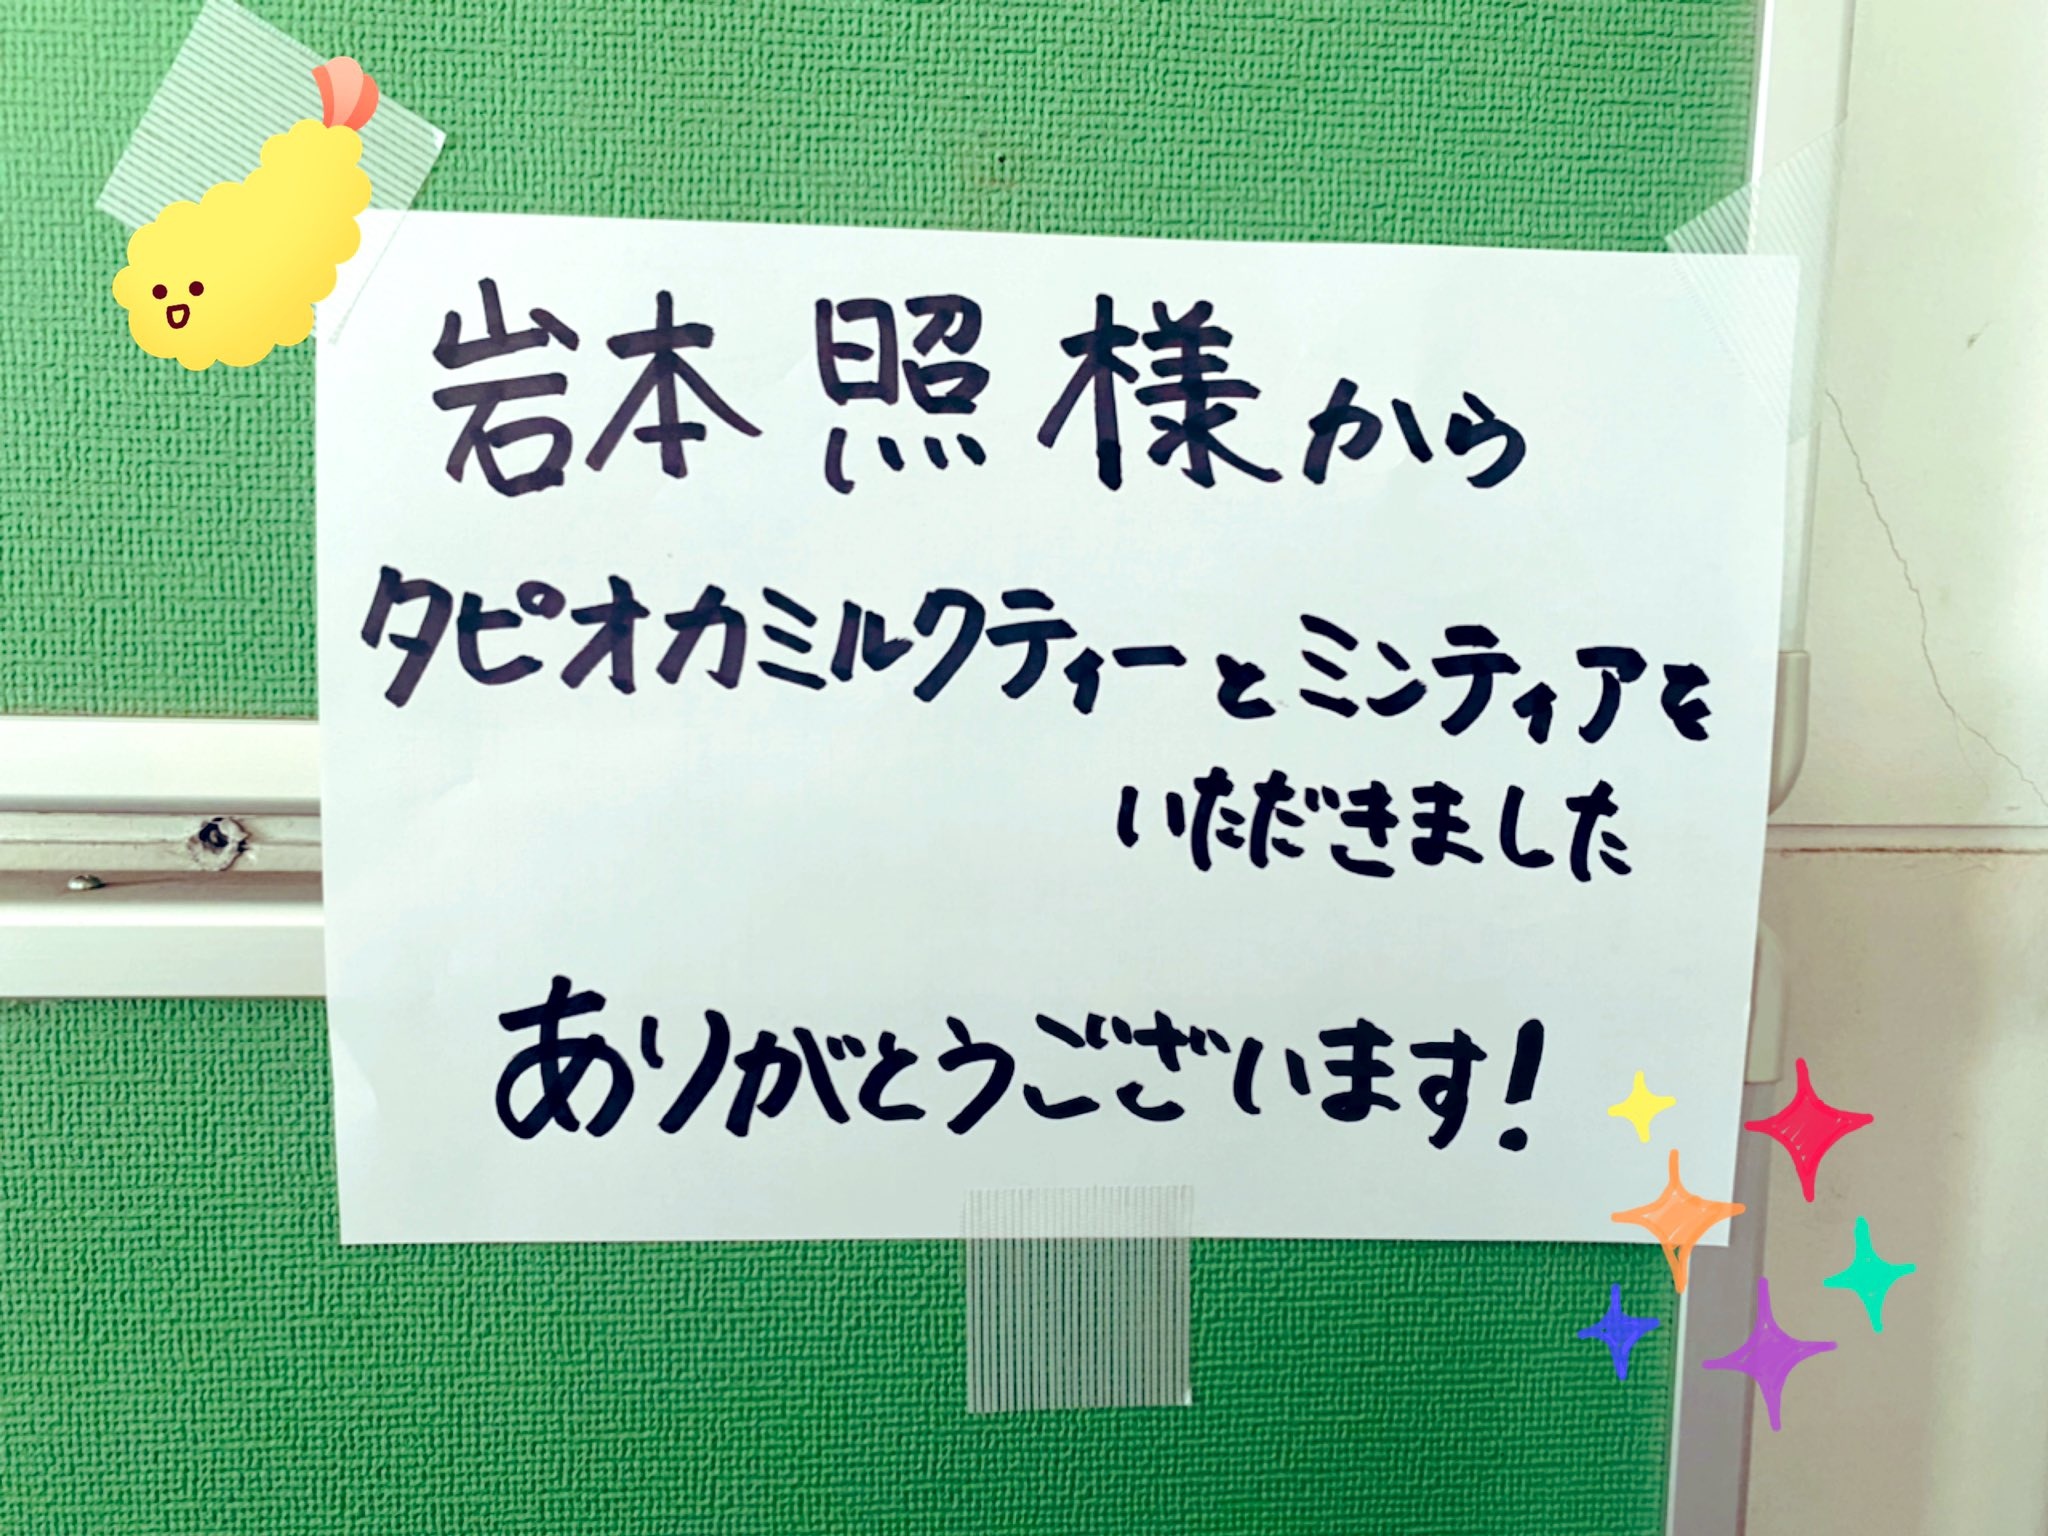 岩本 照 様から
タピオカミルクティーとミンティアを
いただきました
ありがとうございます!